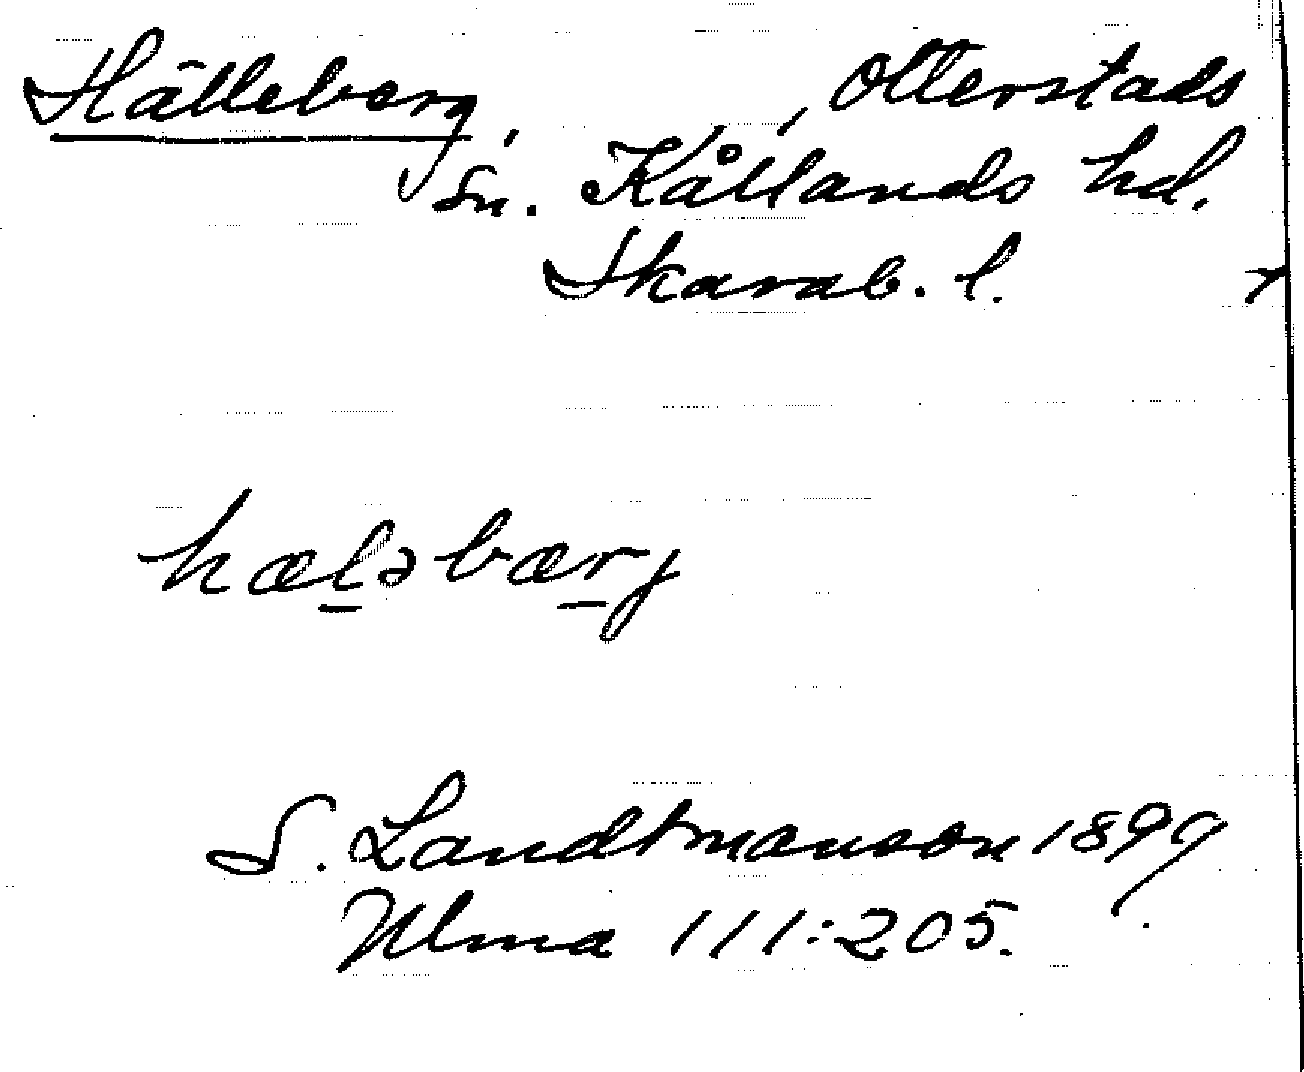 Hälleberg, Otterstads
sn. Kållands hd.
Skarab. l. +
hæləbærj
S. Landtmanson 1899.
Ulma 111:205.